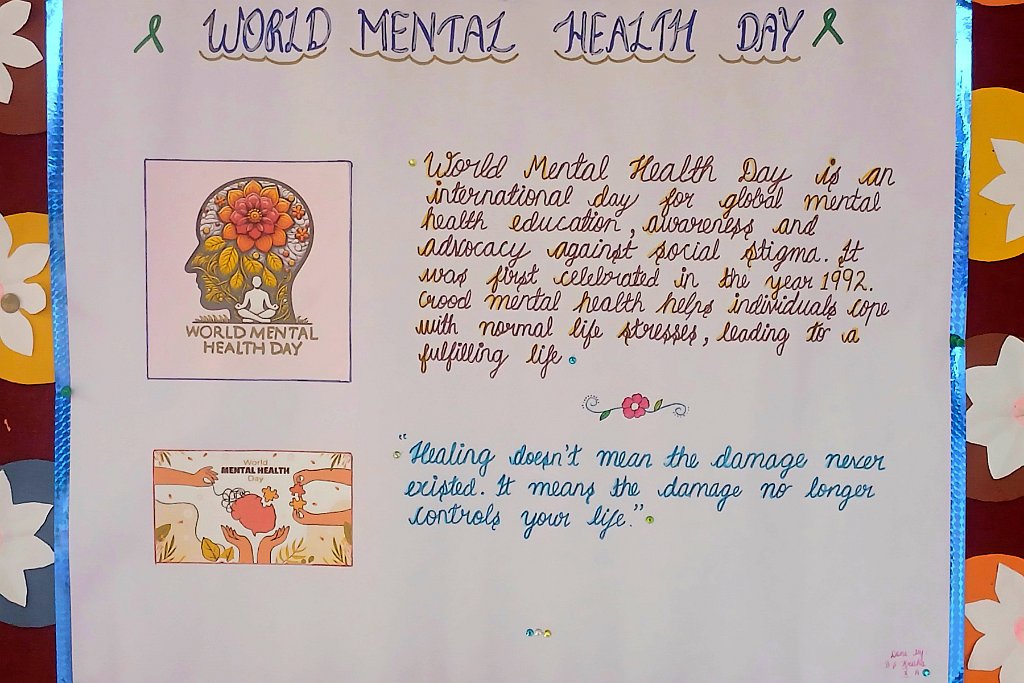 WORLD MENTAL HEALTH DAY
World Mental Health Day is an
international day for global mental
health education, awareness and
advocacy against social stigma. It
was first celebrated in the year 1992.
Good mental health helps individuals cope
with normal life stresses, leading to a
fulfilling life
WORLD MENTAL
HEALTH DAY
"Healing doesn't mean the damage never
existed. It means the damage no longer
controls your life."
World
MENTAL HEALTH
Day
Done by